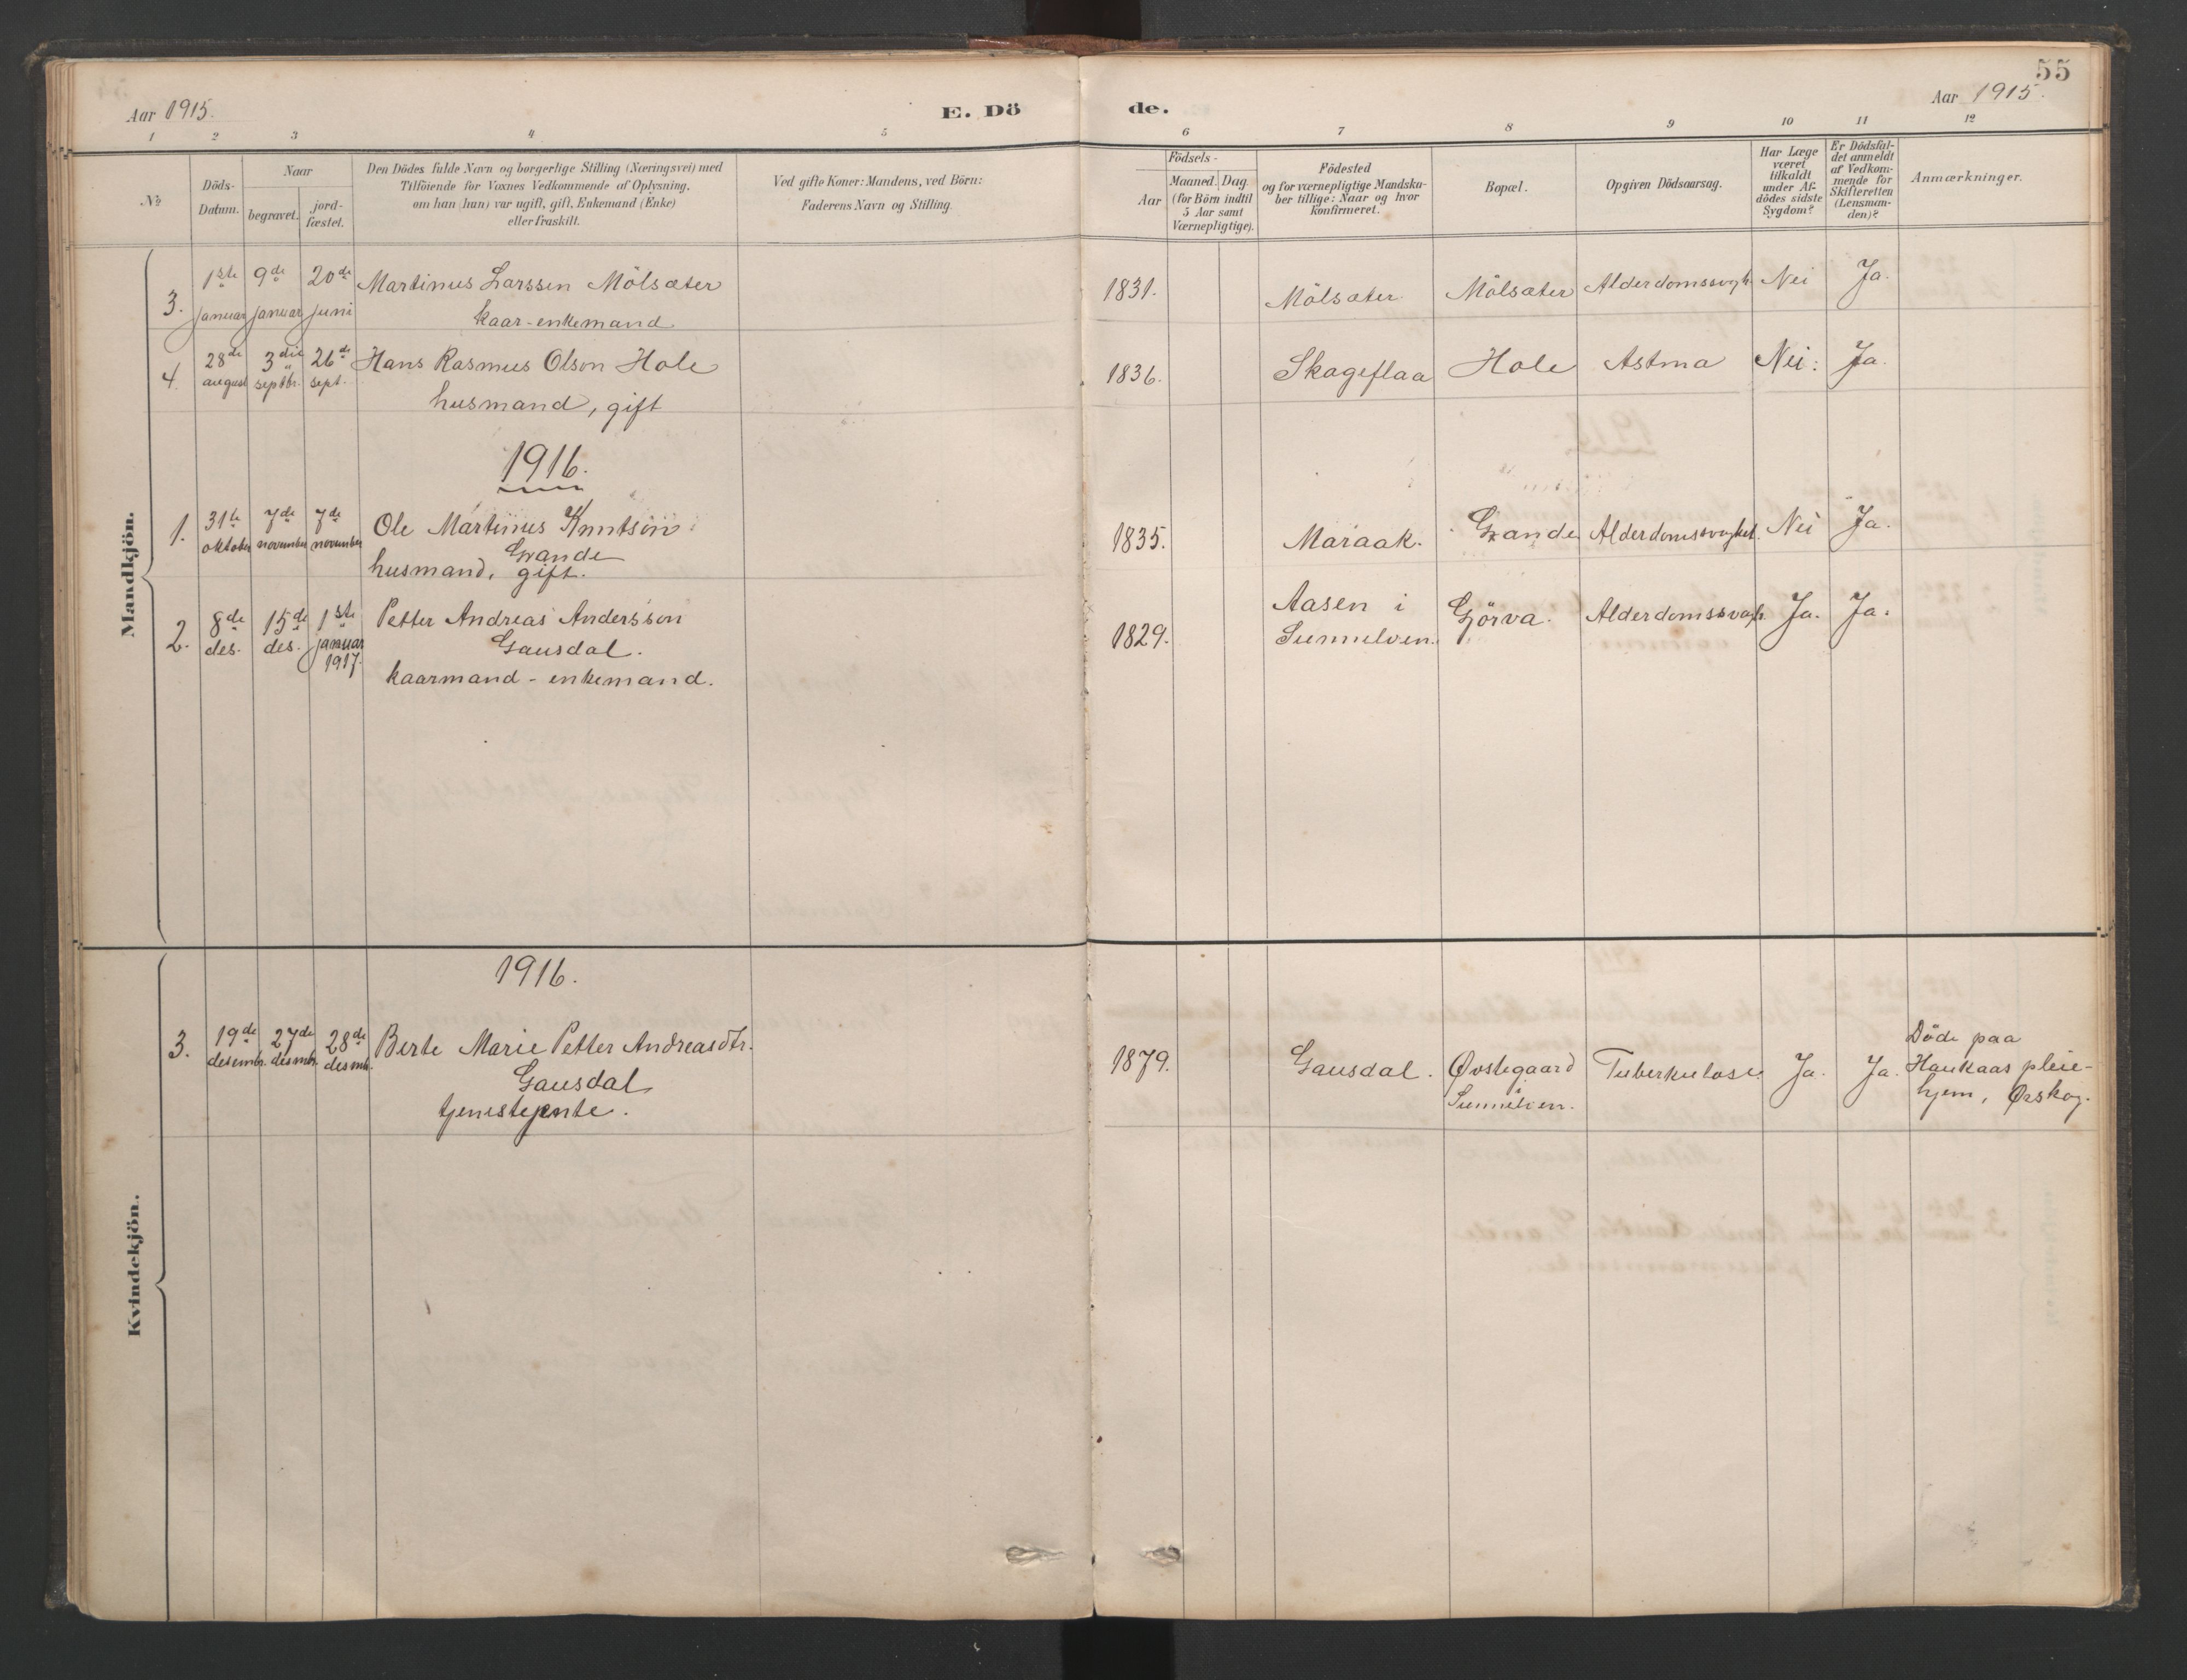 55
Aar 1915. E. Döde. Aar 1915.
1 2 3 4 5 6 7 8 9 10 11 12
No
Döds-
Datum.
Naar
begravet.
jord-
fæstet.
Den Dödes fulde Navn og borgerlige Stilling (Næringsvei) med
Tilföiende for Voxnes Vedkommende af Oplysning,
om han (hun) var ugift, gift, Enkemand (Enke)
eller fraskilt.
Ved gifte Koner: Mandens, ved Börn:
Faderens Navn og Stilling.
Födsels-
Aar
Maaned. Dag.
(for Börn indtil
5 Aar samt
Værnepligtige).
Födested
og for værnepligtige Mandska-
ber tillige: Naar og hvor
konfirmeret.
Bopæl.
Opgiven Dödsaarsag.
Har Læge
været
tilkaldt
under Af-
dödes sidste
Sygdom?
Er Dödsfal-
det anmeldt
af Vedkom-
mende for
Skifteretten
(Lensman-
den)?
Anmærkninger.
Mandkjön.
3. 1ste januar 9de januar 20de juni Martinus Larssen Mölsæter 1831. Mölsæter Mölsæter Alderdomssvagh. Nei Ja.
kaar-enkemand
4. 28de august 3die septbr. 26de sept. Hans Rasmus Olson Hole 1836. Skageflaa Hole Astma Nei: Ja.
husmand, gift
1916.
1. 31te oktober 7de november 7de november Ole Martinus Knutson 1835. Maraak. Grande Alderdomssvaghet. Nei Ja.
Grande
husmand, gift.
2. 8de des. 15de des. 1ste januar 1917. Petter Andreas Andersson 1829. Aasen i Sunnelven. Görva. Alderdomssvagh. Ja. Ja.
Gausdal.
kaarmand - enkemand.
Kvindekjön.
1916.
3. 19de desembr. 27de desmbr. 28de desmb. Berte Marie Petter Andreasdtr. 1879. Gausdal. Øvstegaard i Sunnelven. Tuberkulose. Ja. Ja. Döde paa
Gausdal Haukaas pleie-
tjenestejente. hjem, Ørskog.